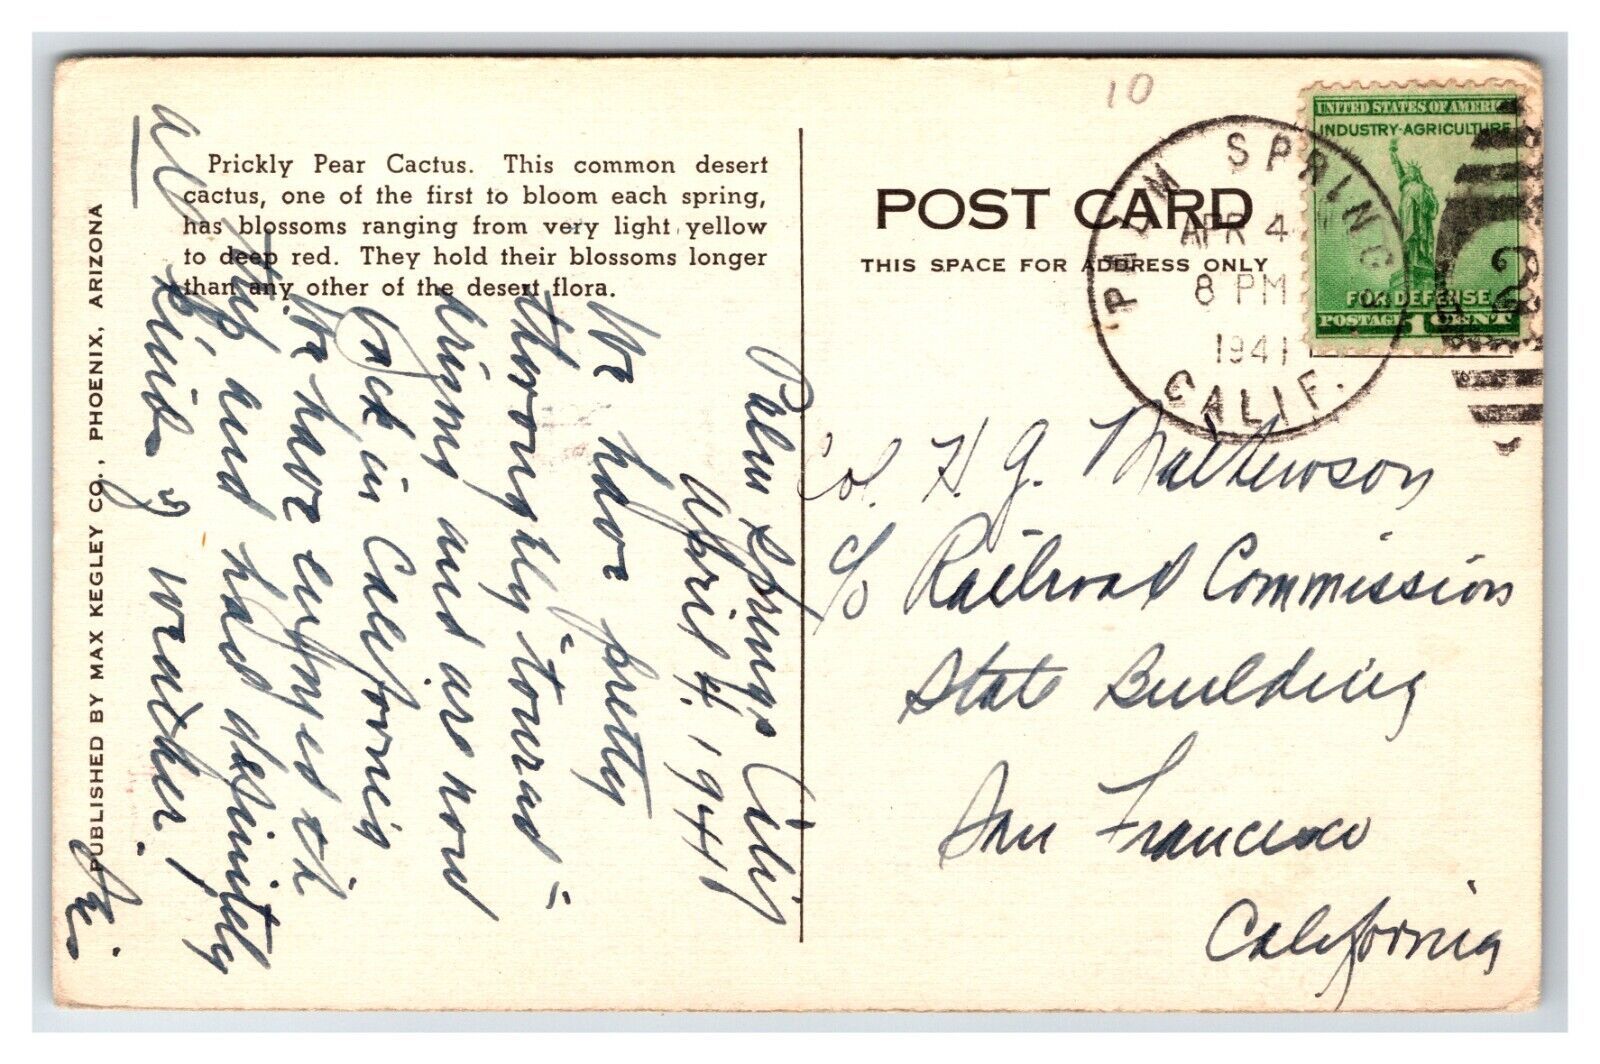 10
Prickly Pear Cactus. This common desert
cactus, one of the first to bloom each spring,
has blossoms ranging from very light yellow
to deep red. They hold their blossoms longer
than any other of the desert flora.
PUBLISHED BY MAX KEGLEY CO., PHOENIX, ARIZONA
POST CARD
THIS SPACE FOR ADDRESS ONLY
PALM SPRINGS
APR 4
8 PM
1941
CALIF.
UNITED STATES OF AMERICA
INDUSTRY-AGRICULTURE
FOR DEFENSE
POSTAGE 1 CENT
Palm Springs Calif
April 4, 1941
We have pretty
thoroughly "toured"
Arizona and are now
back in California
We have enjoyed th
trip and had definitely
all kinds of weather.
Col. H. G. Mathewson
c/o Railroad Commission
State Building
San Francisco
California